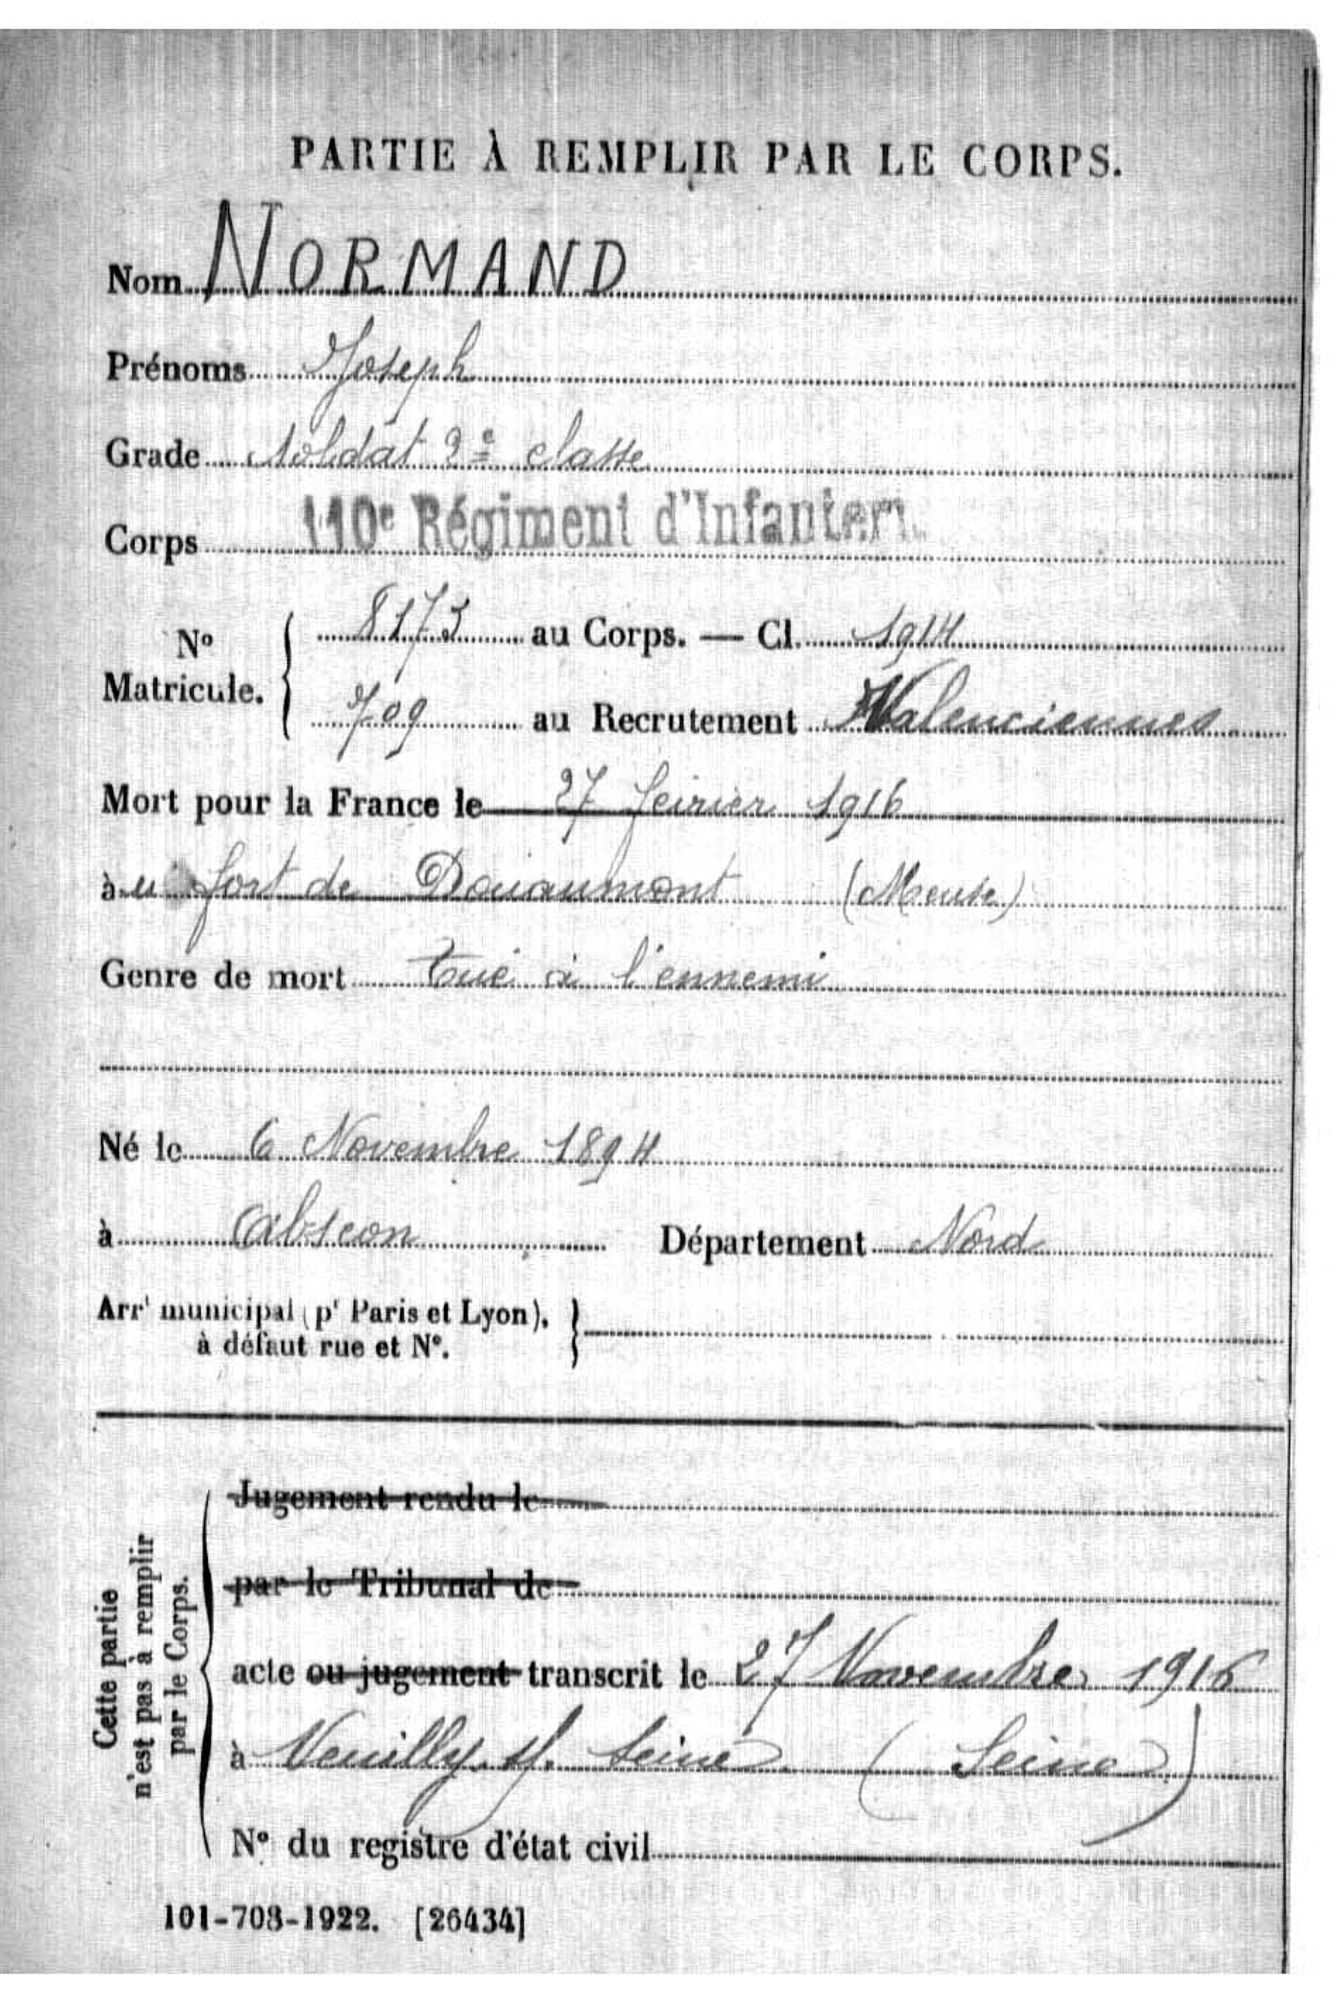 PARTIE À REMPLIR PAR LE CORPS.
Nom NORMAND
Prénoms Joseph
Grade Soldat 2e classe
Corps 110e Régiment d'Infanteri
No Matricule. { 8173 au Corps. — Cl. 1914
709 au Recrutement Valenciennes
Mort pour la France le 27 février 1916
à u fort de Douaumont (Meuse)
Genre de mort tué à l'ennemi
Né le 6 Novembre 1894
à Abscon Département Nord
Arrt municipal (pr Paris et Lyon), à défaut rue et No. }
Cette partie n'est pas à remplir par le Corps.
Jugement rendu le
par le Tribunal de
acte ou jugement transcrit le 27 Novembre 1916
à Neuilly s/ Seine (Seine)
No du registre d'état civil
101-708-1922. [26434]